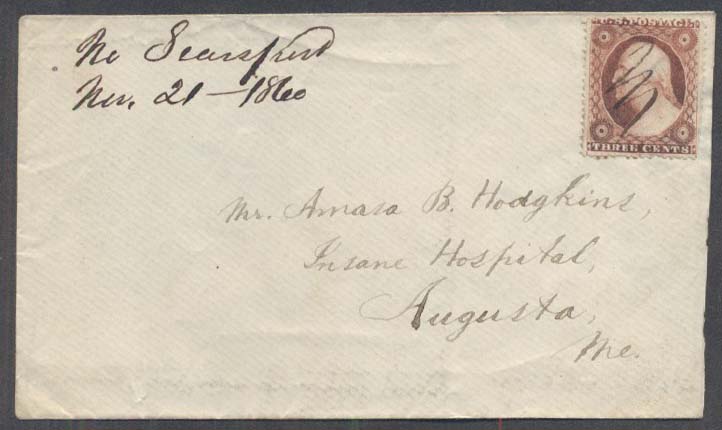 No Searsport
Nov. 21 - 1860
THREE CENTS
Mr. Amasa B. Hodgkins,
Insane Hospital,
Augusta,
Me.